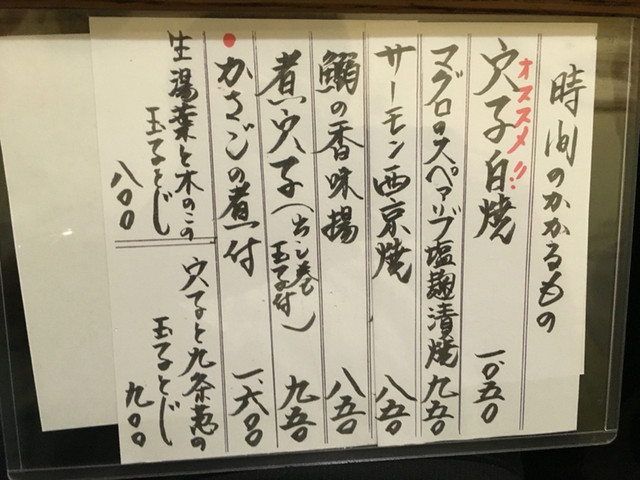 時間のかかるもの
オススメ!!
穴子白焼 一、〇五〇
マグロのスペアリブ塩麹漬焼 九五〇
サーモン西京焼 八五〇
鰯の香味揚 八五〇
煮穴子(出し巻玉子付) 九五〇
かさごの煮付 一、六〇〇
生湯葉と木のこの
玉子とじ
八〇〇
穴子と九条葱の
玉子とじ
九〇〇